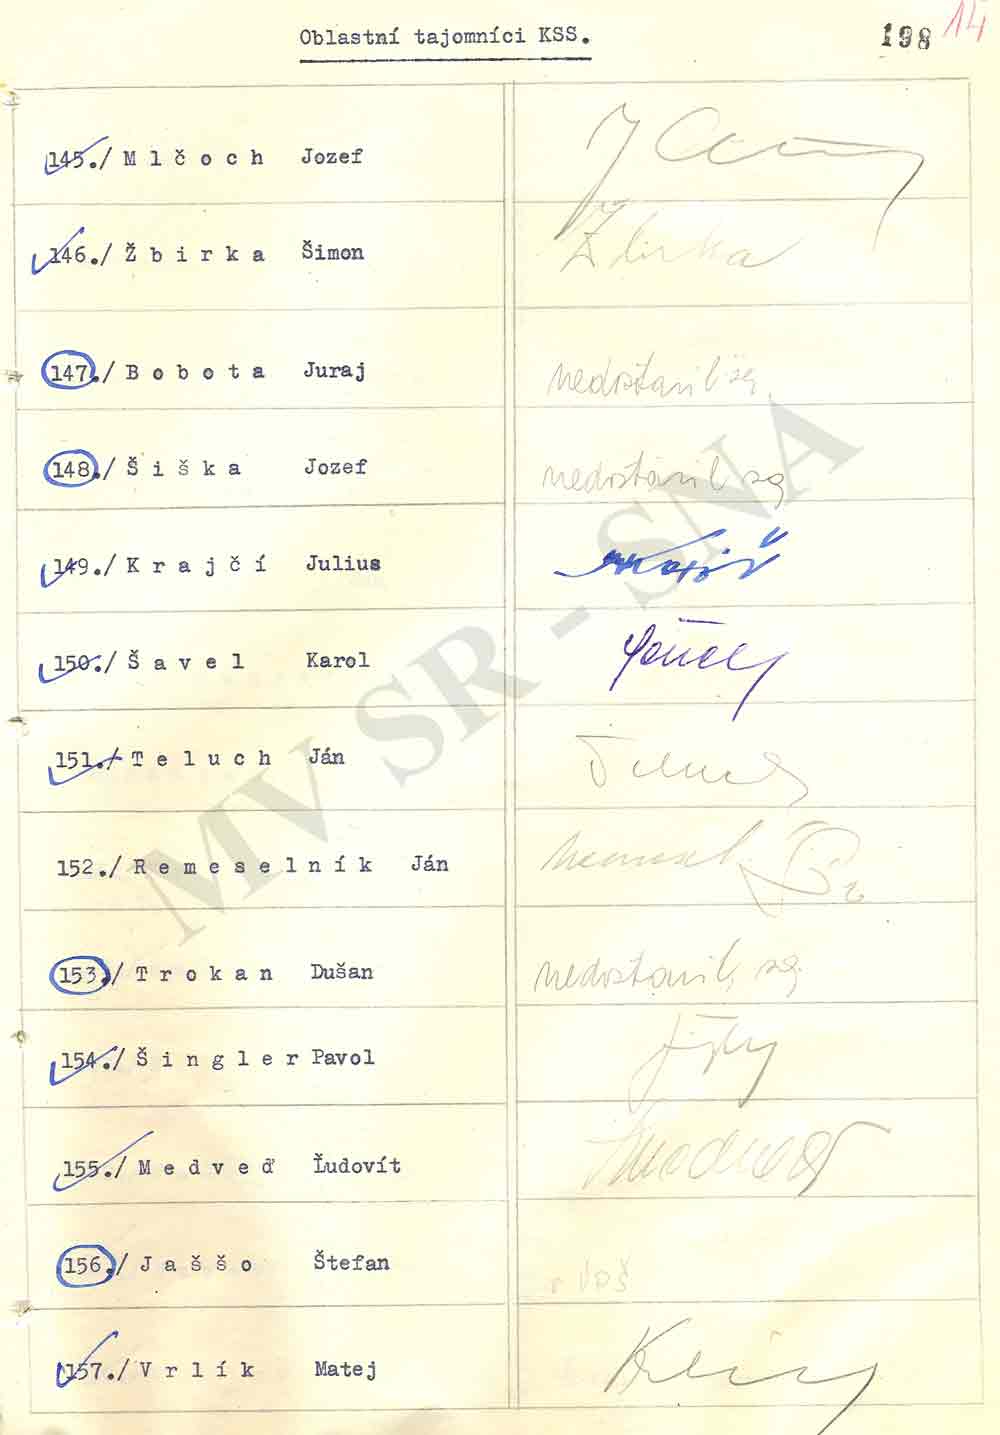 Oblastní tajomníci KSS.
198 14
145./ M l č o c h Jozef
146./ Ž b i r k a Šimon Žbirka
147./ B o b o t a Juraj nedostavil sa
148./ Š i š k a Jozef nedostavil sa
149./ K r a j č í Julius
150./ Š a v e l Karol
151./ T e l u c h Ján
152./ R e m e s e l n í k Ján
153./ T r o k a n Dušan nedostavil sa
154./ Š i n g l e r Pavol
155./ M e d v e ď Ľudovít
156./ J a š š o Štefan
157./ V r l í k Matej
MV SR - SNA